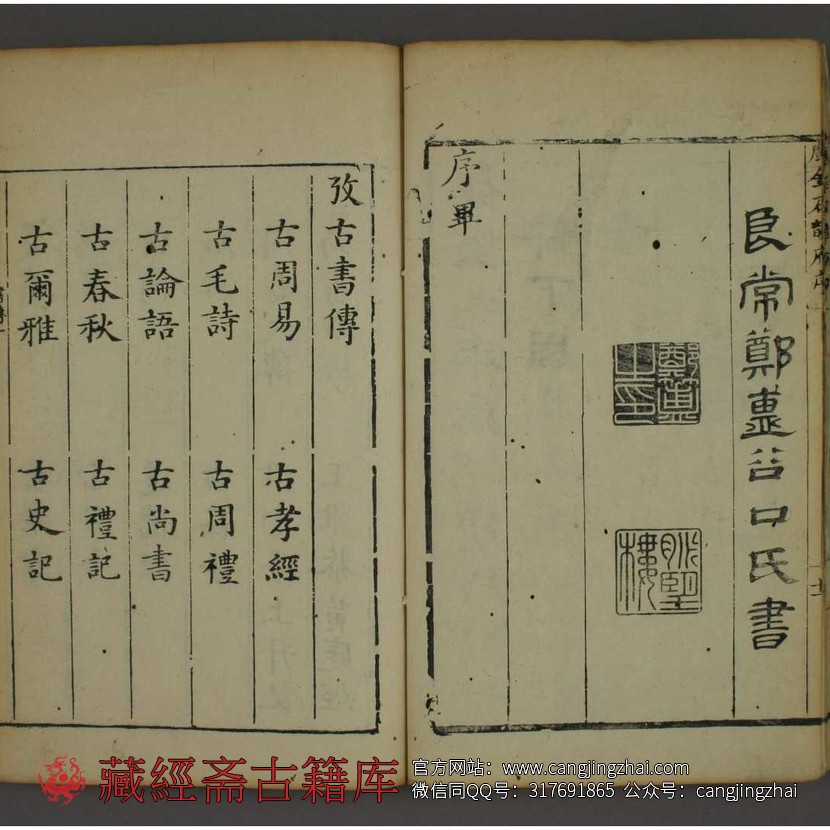 良常鄭䵻谷口氏書
鄭簠
之印
眺望
樓
序畢
攷古書傳
古周易
古孝經
古毛詩
古周禮
古論語
古尚書
古春秋
古禮記
古爾雅
古史記
藏經斋古籍库
官方网站：www.cangjingzhai.com
微信同QQ号：317691865 公众号：cangjingzhai